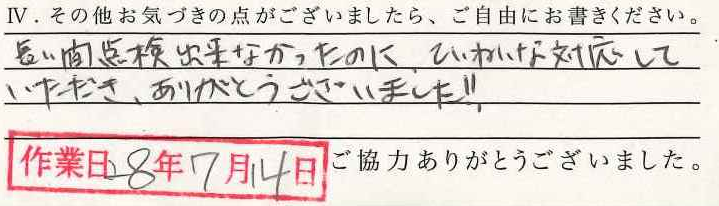 Ⅳ．その他お気づきの点がございましたら、ご自由にお書きください。
長い間点検出来なかったのに、ていねいな対応して
いただき、ありがとうございました!!
作業日 28年7月14日 ご協力ありがとうございました。